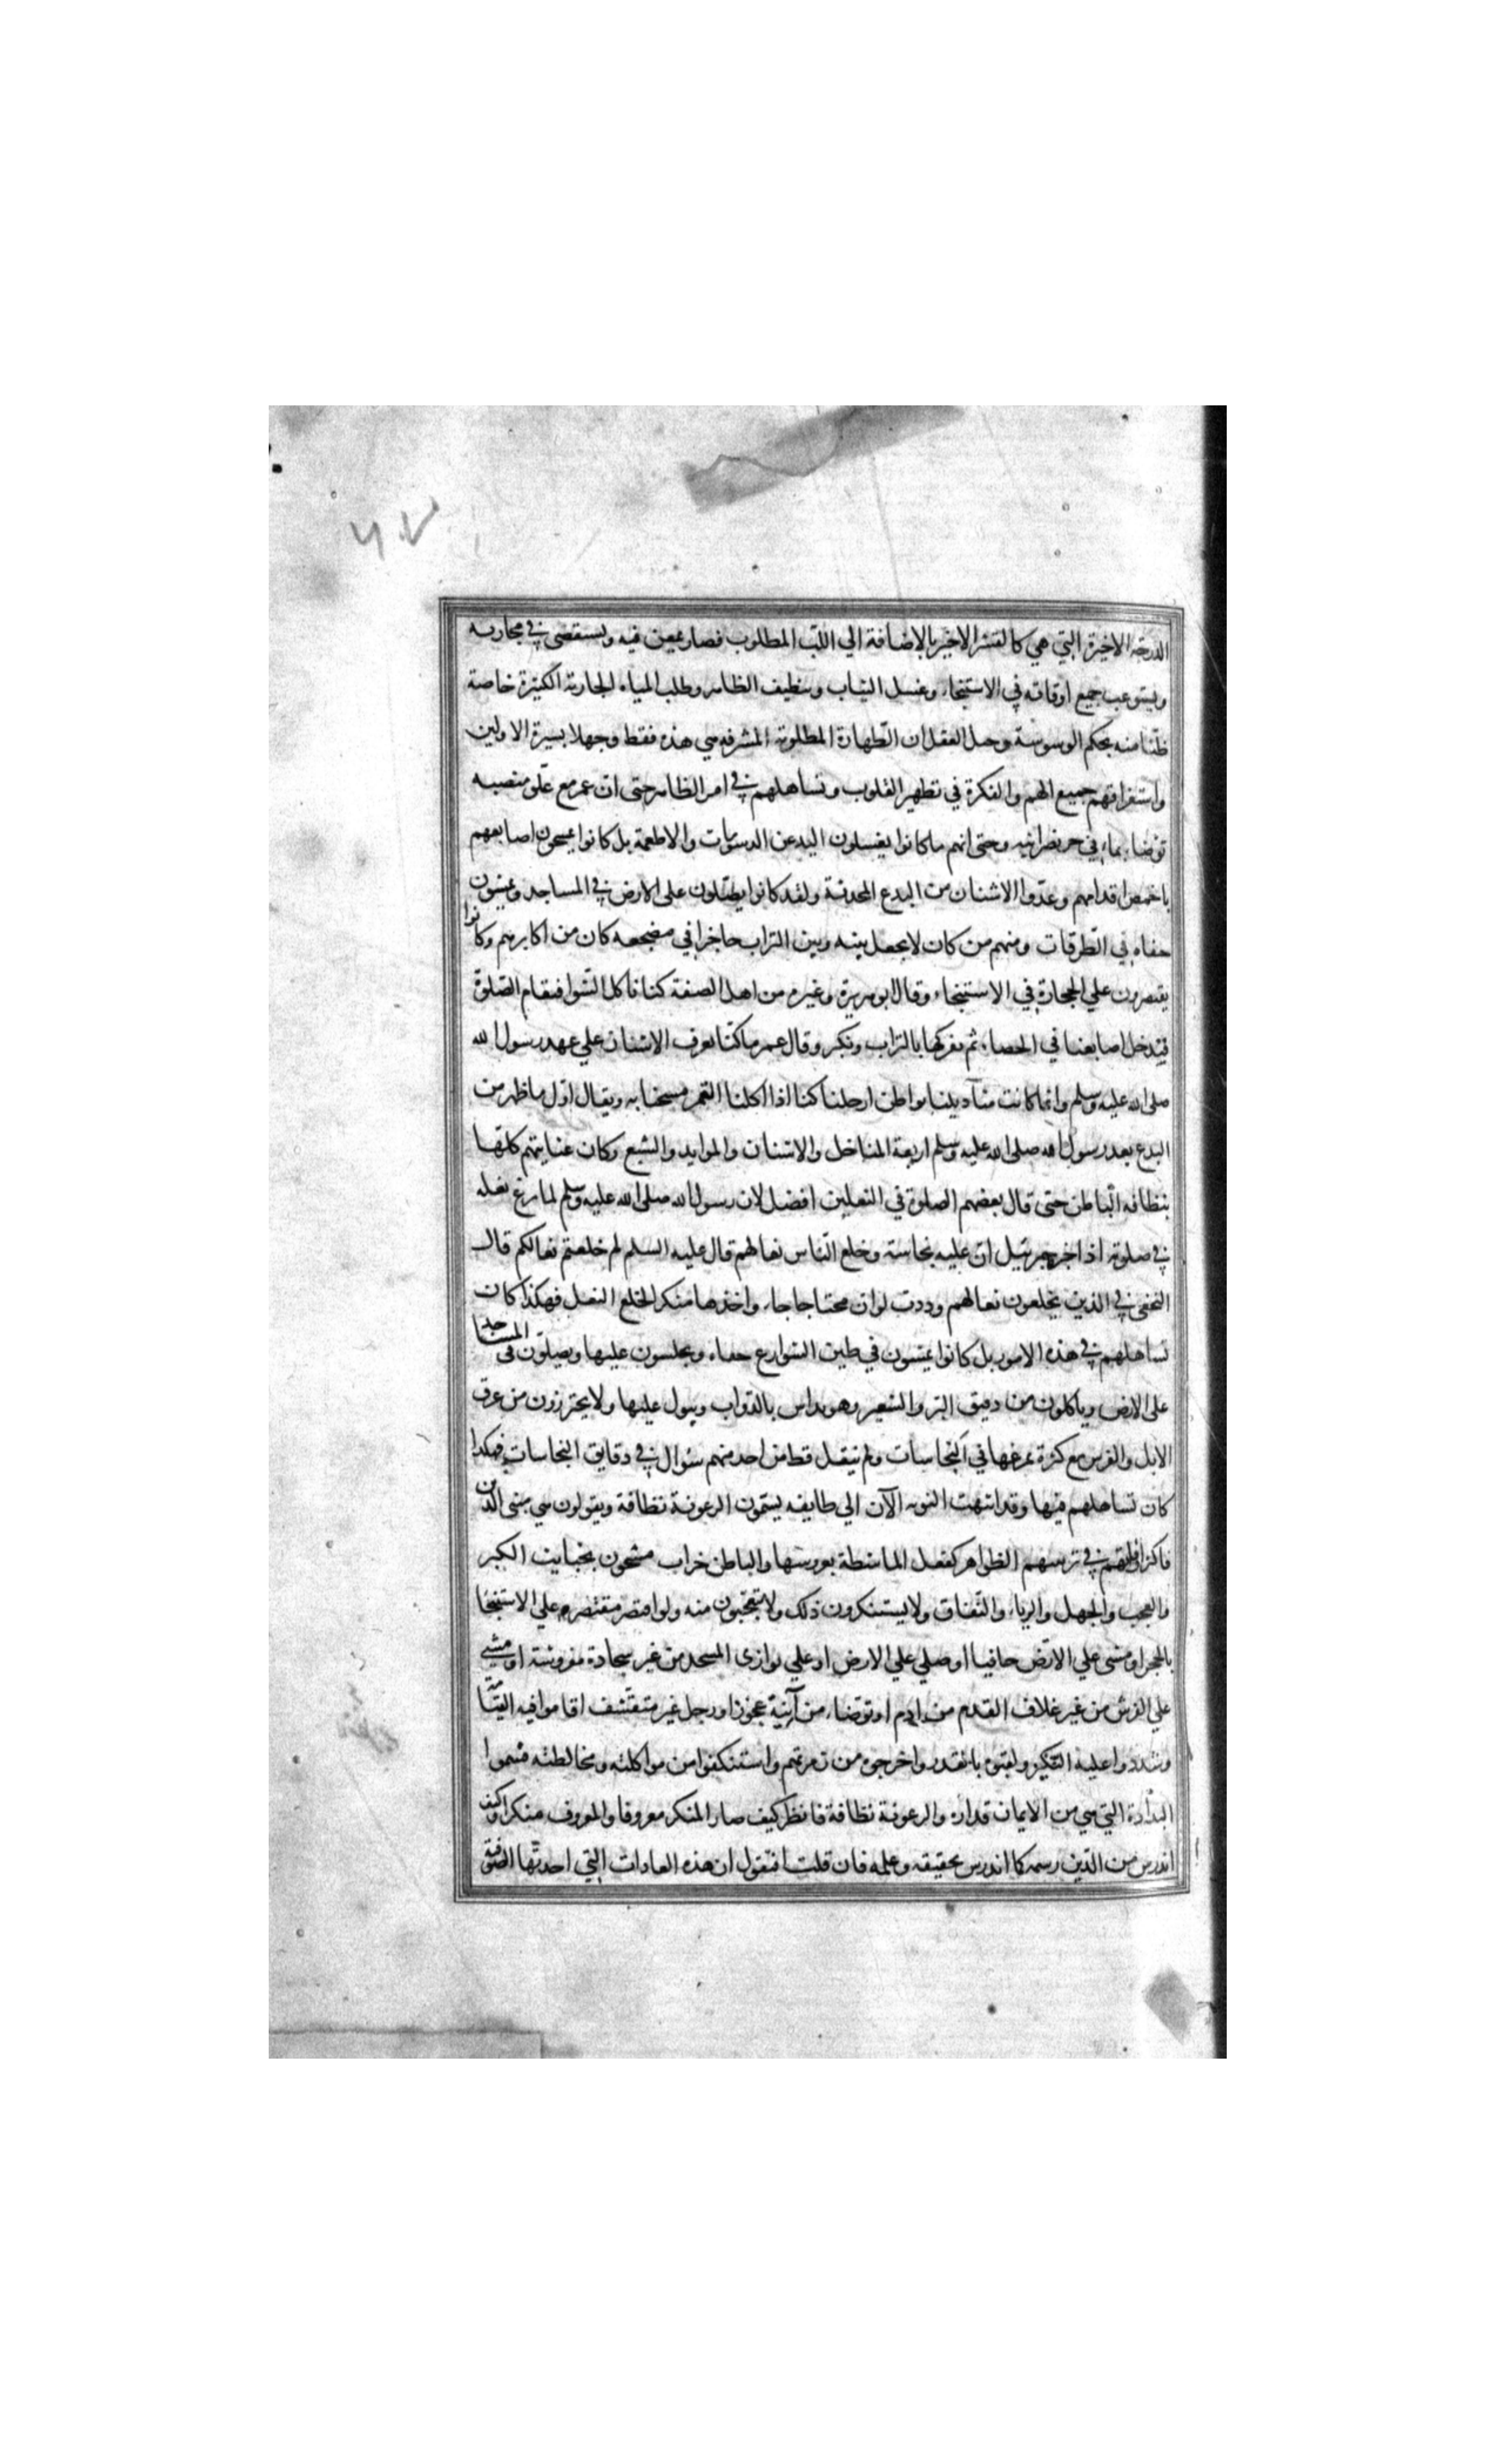 الدرجه الاخيرة التي هي كالقشر الاخير بالاضافة الي اللبّ المطلوب فصار يمعن فيه ويستقصى في مجاريه
ويستوعب جميع اوقاته في الاستنجاء وغسل الثياب وتنظيف الظاهر وطلب المياه الجارية الكثيرة خاصة
ظنّا منه بحكم الوسوسة وخبل العقل ان الطهارة المطلوبة المشرفه هي هذه فقط وجهلا بسيرة الاولين
واستغراقهم جميع الهم والفكرة في تطهير القلوب وتساهلهم في امر الظاهر حتى ان عمر مع علّو منصبه
توضاء بماء في جر نصرانيه وحتى انهم ما كانوا يغسلون اليد عن الدسومات والاطعمة بل كانوا يمسحون اصابعهم
باخمص اقدامهم وعدّوا الاشنان من البدع المحدثة ولقد كانوا يصّلون على الارض في المساجد ويمشون
حفاه في الطرقات ومنهم من كان لا يجعل بينه وبين التراب حاجزا في مضجعه كان من اكابرهم وكانوا
يقتصرون علي الحجارة في الاستنجاء وقال ابو هريرة وغيره من اهل الصفة كنا ناكل الشوا فيقام الصّلوة
فيدخل اصابعنا في الحصاء ثم نفركها بالتراب ونكبر وقال عمر ما كنّا نعرف الاشنان علي عهد رسول الله
صلى الله عليه وسلم وانما كانت مناديلنا بواطن ارجلنا كنا اذا اكلنا التمر مسحنا به ويقال اول ما ظهر من
البدع بعد رسول الله صلى الله عليه وسلم اربعة المناخل والاشنان والموايد والشبع وكان عنايتهم كلها
بنظافه الباطن حتى قال بعضهم الصلوة في النعلين افضل لان رسول الله صلى الله عليه وسلم لما نزع نعله
في صلوته اذ اخبر جبرئيل ان عليه نجاسة وخلع الناس نعالهم قال عليه السلم لم خلعتم نعالكم قال
النخعى في الذين يخلعون نعالهم وددت لو ان محتاجا جاء واخذها منكر الخلع النعل فهكذا كان
تساهلهم في هذه الامور بل كانوا يمشون في طين الشوارع حفاء ويجلسون عليها ويصلّون فى المساجد
على الارض وياكلون من دقيق البر والشعير وهو يداس بالدّواب ويبول عليها ولا يحترزون من عرق
الابل والفرس مع كثرة تمرغها في النجاسات ولم ينقل قط من احد منهم سؤال في دقايق النجاسات فهكذا
كان تساهلهم فيها وقد انتهت النوبه الآن الي طايفه يسّمون الرعونة نظافة ويقولون هي مبنى الدين
فاكثر اوقاتهم في تزيينهم الظواهر كفعل الماشطة بعروسها والباطن خراب مشحون بخبايث الكبر
والعجب والجهل والرياء والنّفاق ولا يستنكرون ذلك ولا يتعجّبون منه ولو اقتصر مقتصر علي الاستنجا
بالحجر او مشى علي الارض حافيا او صلي علي الارض او علي بوازى المسجد من غير سجادة مفروشة او مشي
علي الفرش من غير غلاف القدم من ادم او توّضاء من آنية عجوز او رجل غير متقشف اقاموا فيه القيّامة
وشددوا عليه النّكير ولقبّوه بالقذر واخرجوه من زمرتهم واستنكفوا من مواكلته ومخالطته فسموا
البذاذة التي هي من الايمان قذارة والرعونة نظافة فانظر كيف صار المنكر معروفا والمعروف منكرا وكيف
اندرس من الدّين رسمه كما اندرس تحقيقه وعلمه فان قلت افتقول ان هذه العادات التي احدثها الصّوفية